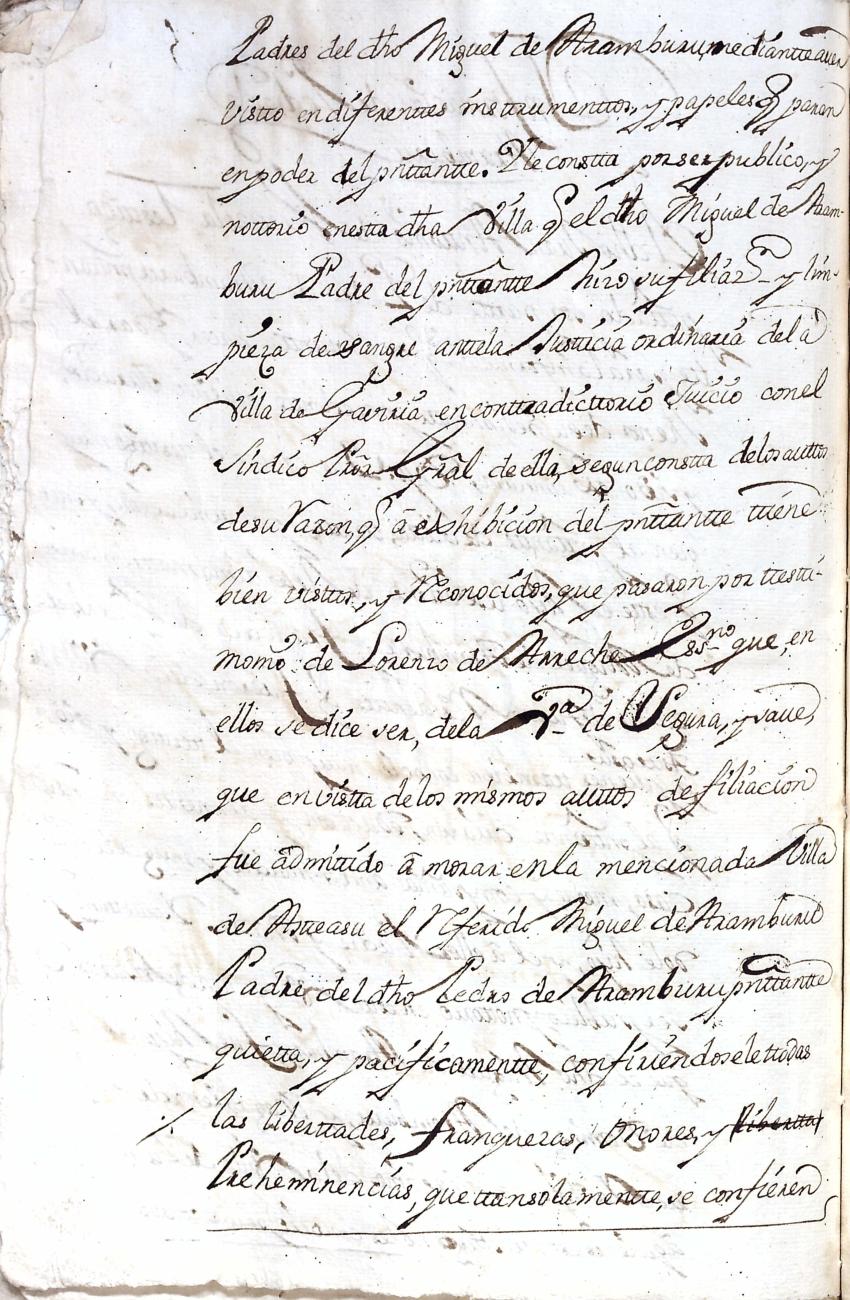 Padres del dho Miguel de Aramburu, mediantte aver
vistto en diferenttes insttrumenttos, y papeles q paran
en poder del pnttantte. Y le constta por ser publico, y
nottorio en estta dha Villa q el dho Miguel de Aram-
buru Padre del pnttantte hizo su filiazon y lim-
pieza de sangre antte la Justticia ordinaria de la
Villa de Gaviria en conttradicttorio Juicio con el
Sindico Pror Gral de ella, segun constta de los auttos
de su razon, q â exhibicion del pnttantte ttiene
bien visttos, y Reconocidos, que pasaron por ttestti-
monio de Lorenzo de Arreche Essno que, en
ellos se dice ser, de la Va de Segura, y save,
que en vistta de los mismos auttos de filiacion
fue âdmittido â morar en la mencionada Villa
de Astteasu el Referido Miguel de Aramburu
Padre del dho Pedro de Aramburu pnttantte
quietta, y pacificamentte, confiriendosele ttodas
las liberttades, franquezas, Onores, y libertta
Preheminencias, que ttan solamentte, se confieren